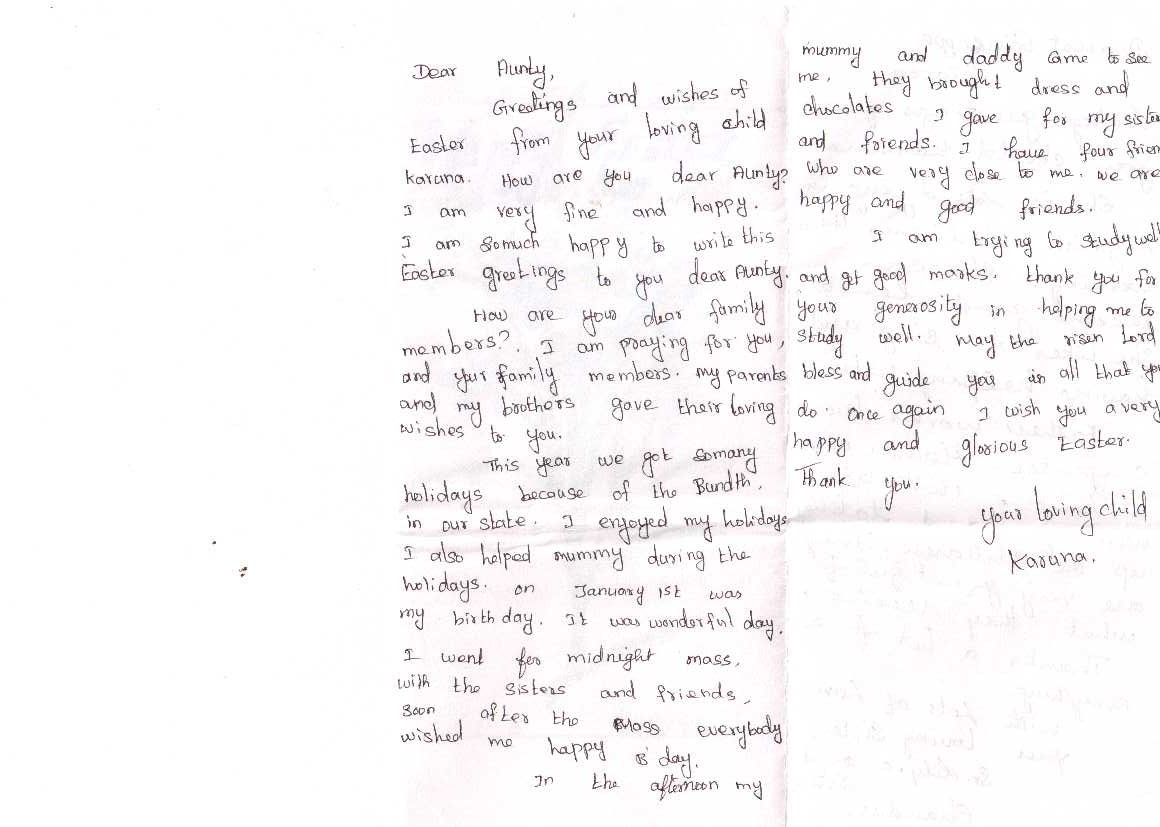 Dear Aunty,
Greetings and wishes of
Easter from your loving child
Karuna. How are you dear Aunty?
I am very fine and happy.
I am somuch happy to write this
Easter greetings to you dear Aunty.
How are your dear family
members?. I am praying for you,
and your family members. My parents
and my brothers gave their loving
wishes to you.
This year we got somany
holidays because of the Bundth,
in our state. I enjoyed my holidays
I also helped mummy during the
holidays. on January 1st was
my birth day. It was wonderful day.
I went for midnight mass,
with the sisters and friends,
soon after the Mass everybody
wished me happy B'day.
In the afternoon my
mummy and daddy came to see
me. they brought dress and
chocolates I gave for my sister
and friends. I have four frien
who are very close to me. we are
happy and good friends.
I am trying to study well
and get good marks. thank you for
your generosity in helping me to
study well. may the risen Lord
bless and guide you in all that you
do. once again I wish you a very
happy and glorious Easter.
Thank you.
your loving child
Karuna.